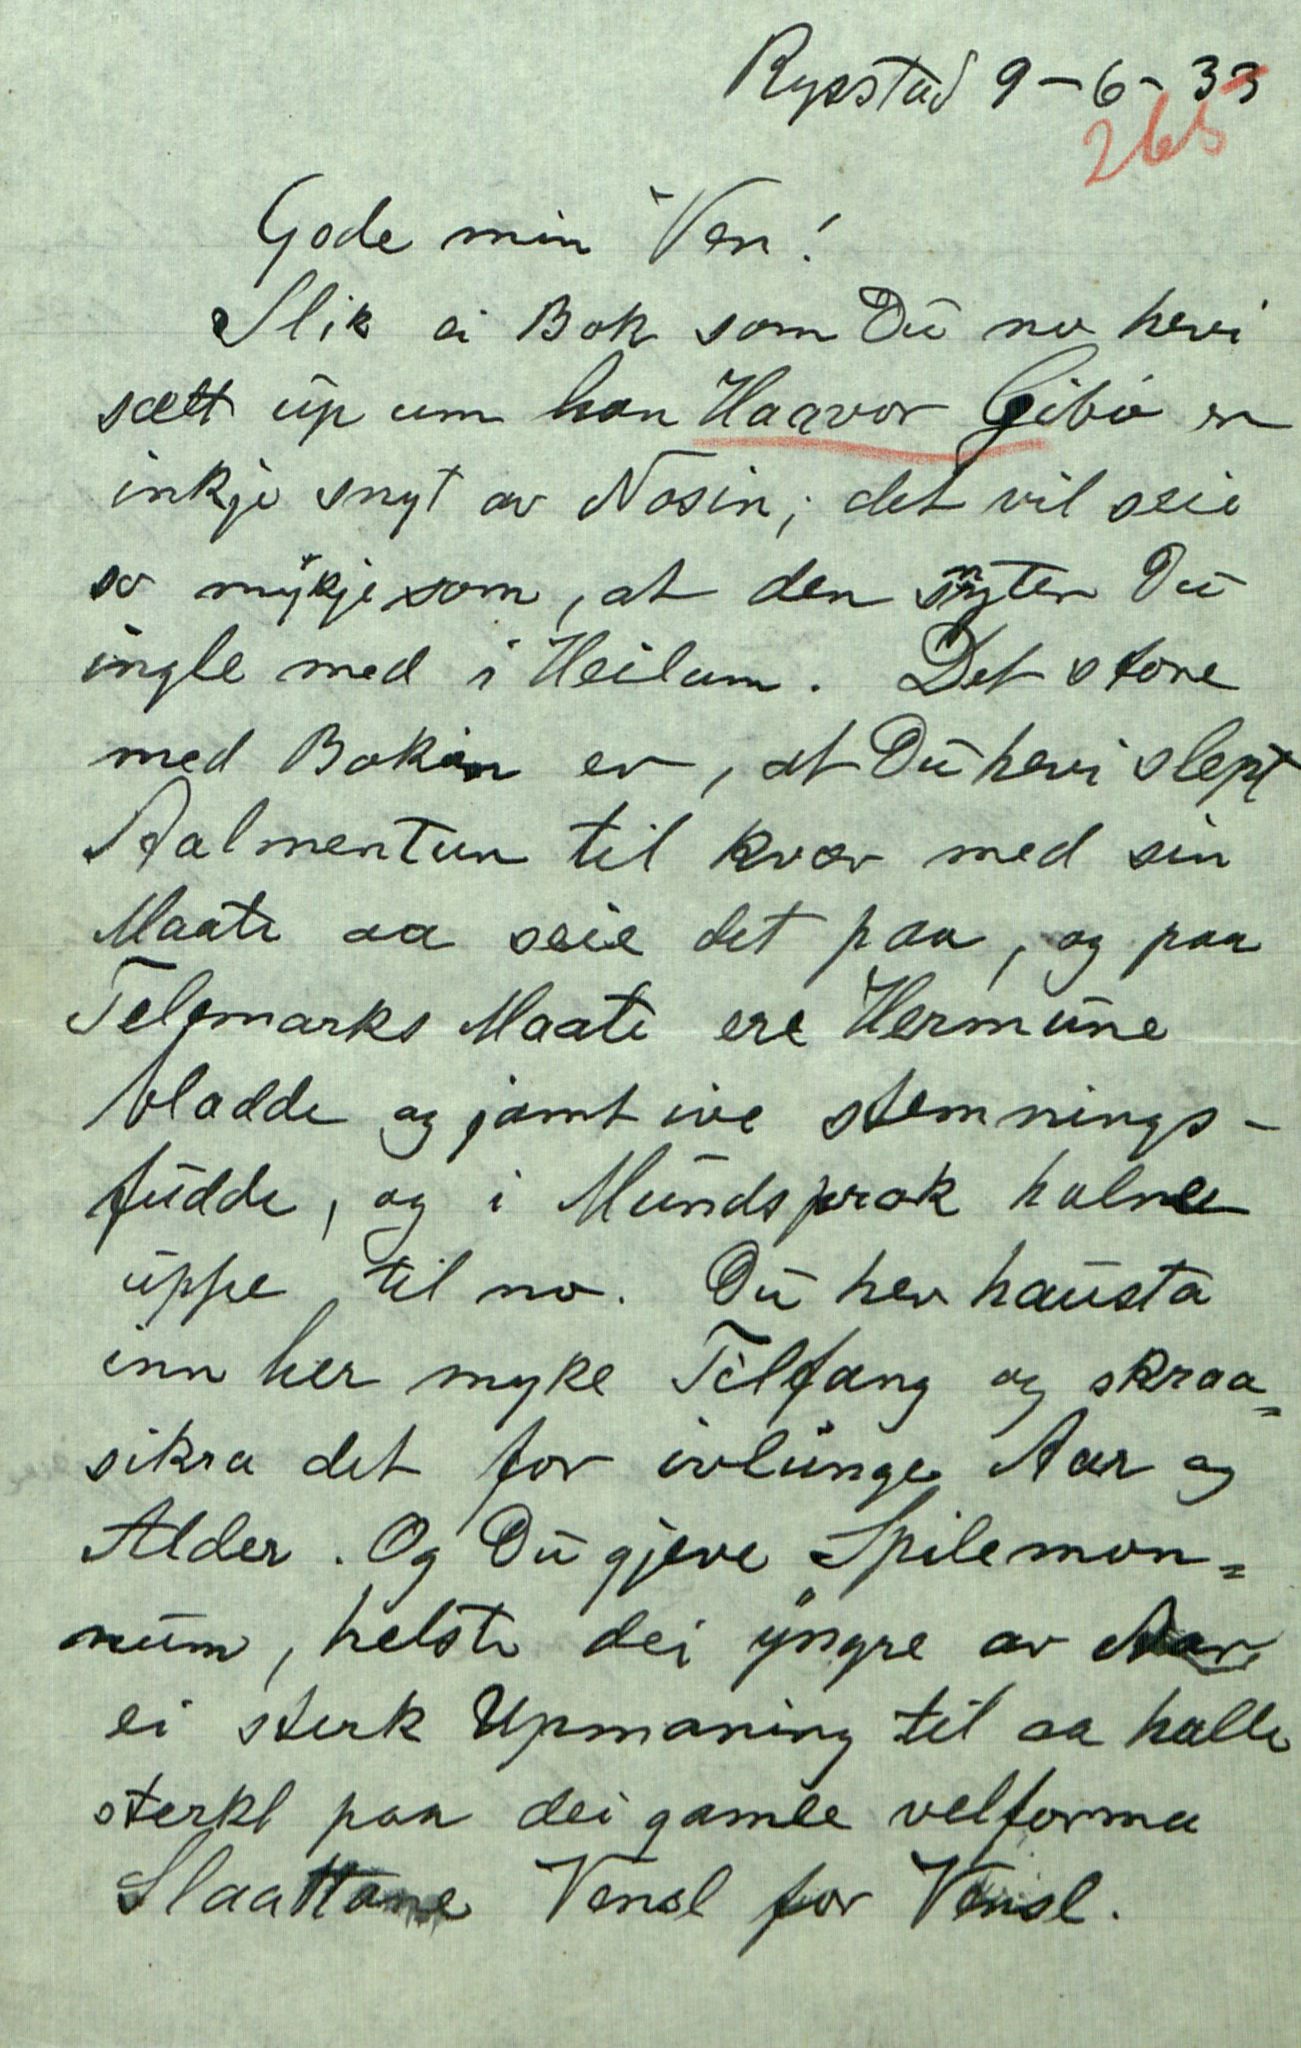 Rysstad 9-6-33
265
Gode min Ven!
Slik ei Bok som Du no hevi
sætt up um han Haavor Gibø er
inkje snyt av Nosin; det vil seie
so mykje som, at den snyter Du
ingle med i Heilum. Det store
med Bokin er, at Du hevi slept
Aalmentun til kvær med sin
Maate aa seie det paa, og paa
Telemarks Maate ere Hermune
bladde og jamt ive stemnings-
fudde, og i Mundsprok halne
uppe til no. Du hev hausta
inn her myke Tilfang og skraa=
sikra det for ivlunge Aar og
Alder. Og Du gjeve Spilemon=
num, helste dei yngre av Aar
ei sterk Upmaning til aa halle
sterkt paa dei gamle velforma
Slaattane Vensl for Vensl.